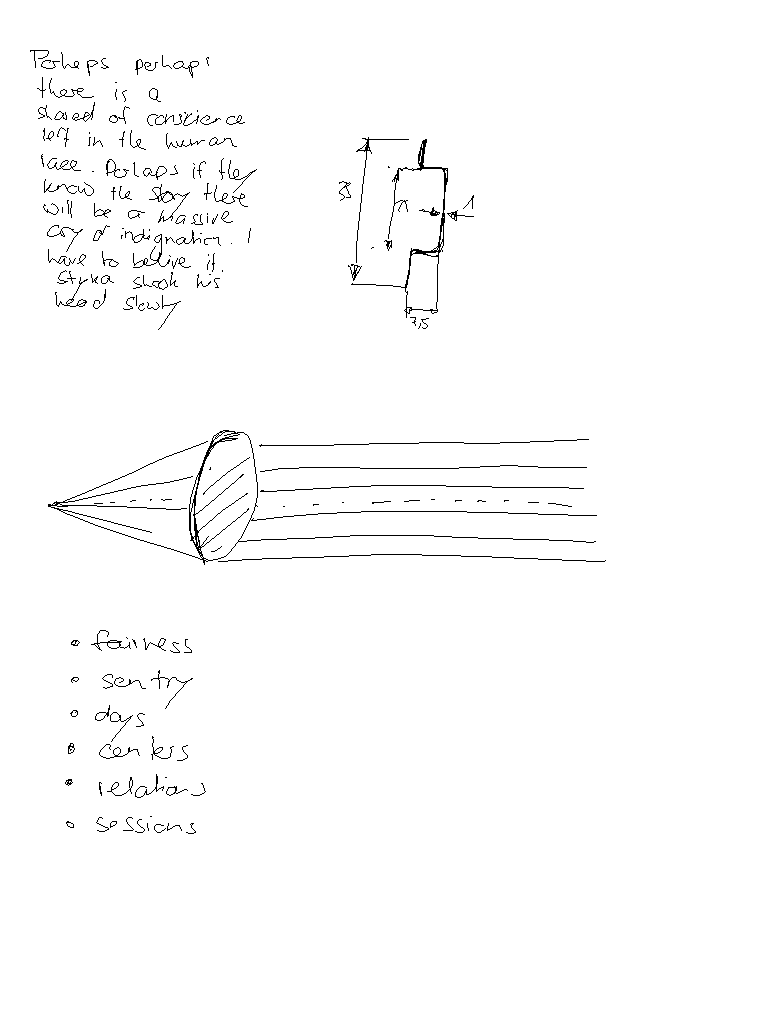 Perhaps perhaps
there is a
shared of conscience
left in the human
race. Perhaps if they
know the story there
will be a massive
cry of indignation. I
have to belive it.
Styka shook his
head slowly
1
3,5
fairness
sentry
days
centers
relations
sessions